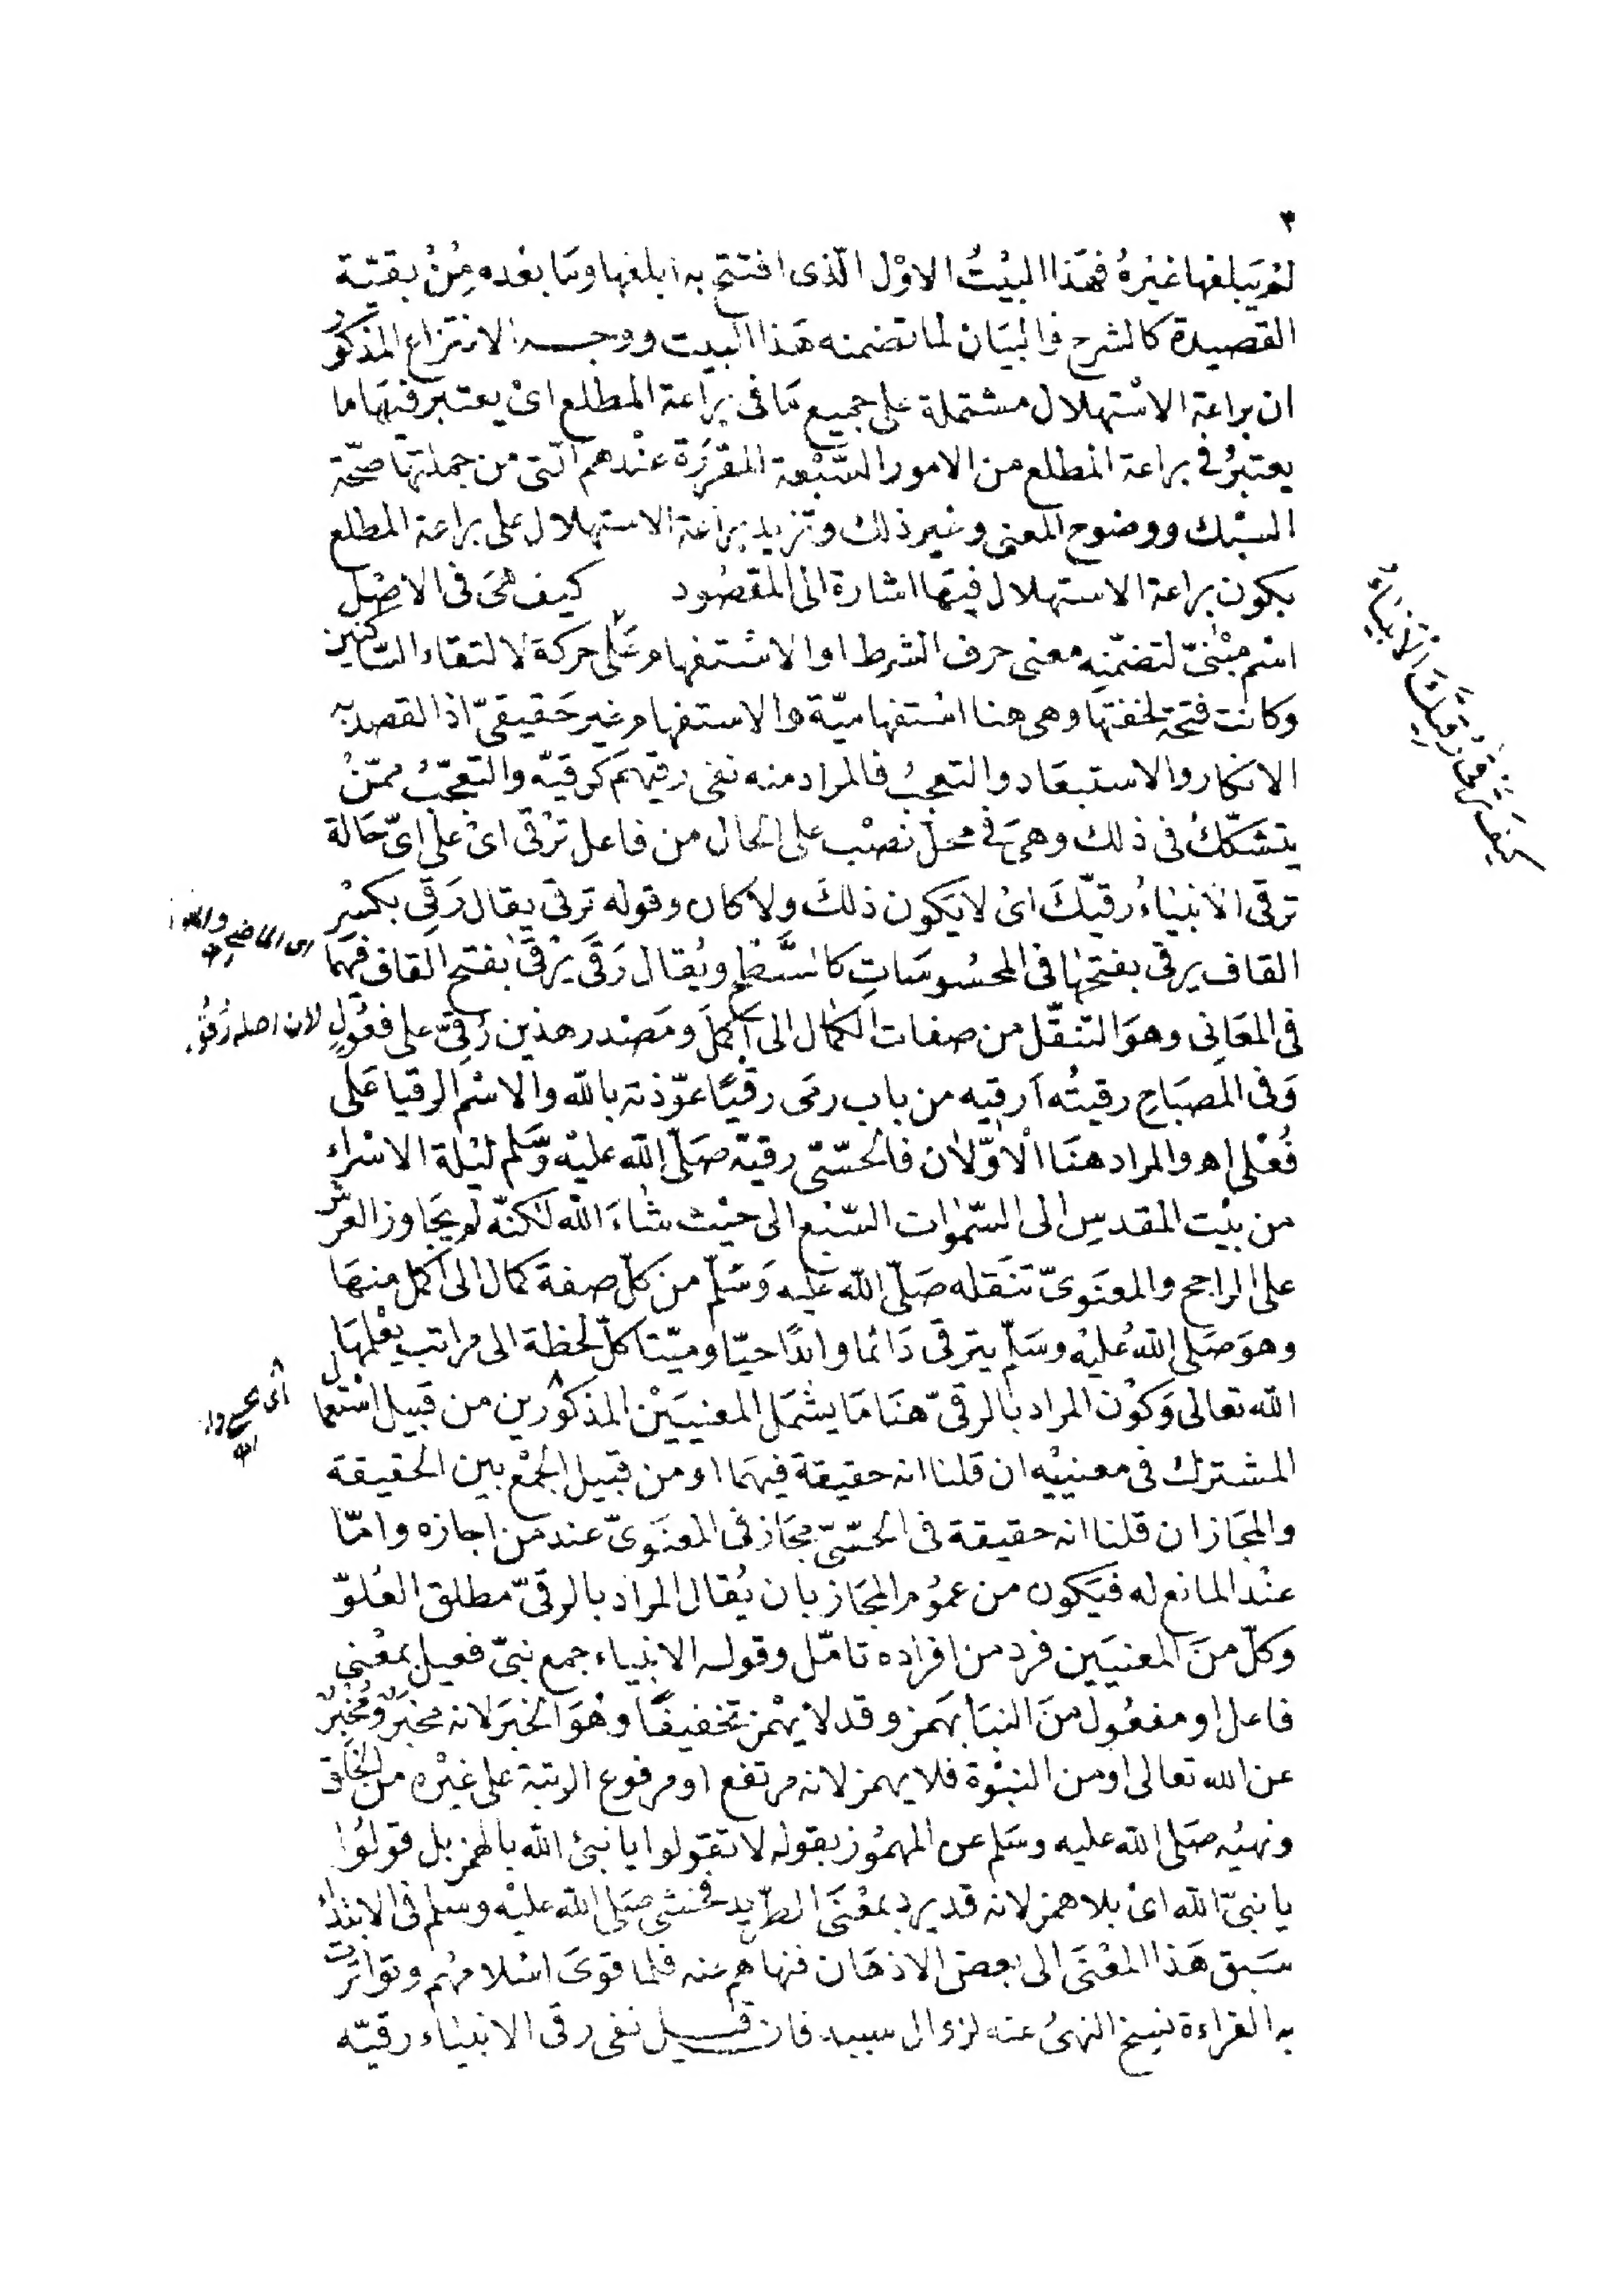 ٣
لم يبلغها غيره فهذا البيت الاول الذى افتتح به ابلغها وما بعده من بقية
القصيدة كالشرح والبيان لما تضمنه هذا البيت ووجه الانتزاع المذكور
ان براعة الاستهلال مشتملة على جميع ما فى براعة المطلع اى يعتبر فيها ما
يعتبر فى براعة المطلع من الامور السبعة المقررة عندهم التى من جملتها صحة
السبك ووضوح المعنى وغير ذلك وتزيد براعة الاستهلال على براعة المطلع
بكون براعة الاستهلال فيها اشارة الى المقصود كيف هى فى الاصل
اسم مبنىّ لتضمنه معنى حرف الشرط او الاستفهام على حركة لالتقاء الساكنين
وكانت فتحة لخفتها وهى هنا استفهامية والاستفهام غير حقيقىّ اذ القصد به
الانكار والاستبعاد والتعجب فالمراد منه نفى رقيهم كرقيّه والتعجّب ممّن
يتشكّك فى ذلك وهى فى محل نصب على الحال من فاعل ترقى اى على اىّ حالة
ترقى الانبياء رقيّك اى لا يكون ذلك ولا كان وقوله ترقى يقال رقِى بكسر
القاف يرقى بفتحها فى المحسوسات كالسطح ويقال رقَى يرقى بفتح القاف فيهما
فى المعانى وهو التنقّل من صفات الكمال الى اكمل ومصدر هذين رقىّ على فعول
وفى المصباح رقيته ارقيه من باب رمى رقيًا عوّذته بالله والاسم الرقيا على
فُعْلى اه والمراد هنا الاوّلان فالحسّىّ رقيّه صلى الله عليه وسلم ليلة الاسراء
من بيت المقدس الى السموات السبع الى حيث شاء الله لكنه لم يجاوز العرش
على الراجح والمعنوىّ تنقله صلى الله عليه وسلم من كلّ صفة كمال الى اكمل منها
وهو صلى الله عليه وسلم يترقى دائما وابدا حيّا وميّتا كلّ لحظة الى مراتب يعلمها
الله تعالى وكون المراد بالرقىّ هنا ما يشمل المعنيين المذكورين من قبيل استعمال
المشترك فى معنييه ان قلنا انه حقيقة فيهما او من قبيل الجمع بين الحقيقة
والمجاز ان قلنا انه حقيقة فى الحسّىّ مجاز فى المعنوىّ عند من اجازه وامّا
عند المانع له فيكون من عموم المجاز بان يُقال المراد بالرقىّ مطلق العلوّ
وكلّ من المعنيين فرد من افراده تامّل وقوله الانبياء جمع نبىّ فعيل بمعنى
فاعل او مفعول من النبأ بهمز وقد لا يهمز تخفيفًا وهو الخبر لانه مخبَر ومخبِر
عن الله تعالى او من النبوة فلا يهمز لانه مرتفع او مرفوع الرتبة على غيره من الخلق
ونهيُه صلى الله عليه وسلم عن المهموز بقوله لا تقولوا يا نبئ الله بالهمز بل قولوا
يا نبىّ الله اى بلا همز لانه قد يرد بمعنى الطريد فخشى صلى الله عليه وسلم فى الابتداء
سبق هذا المعنى الى بعض الاذهان فنهاهم عنه فلما قوى اسلامهم وتواترت
به القراءة نسخ النهى عنه لزوال سببه فان قيل نفى رقى الانبياء رقيّه
كيف ترقى رقيّك الانبياء
اى الماضى
لان اصله رقوى